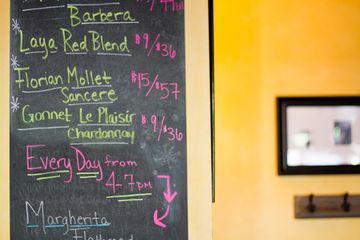 Barbera
Laya Red Blend $9/$36
Florian Mollet $15/57
Sancere
Gonnet Le Plaisir $9/$36
Chardonnay
Every Day from
4-7pm
Margherita
Flatbread